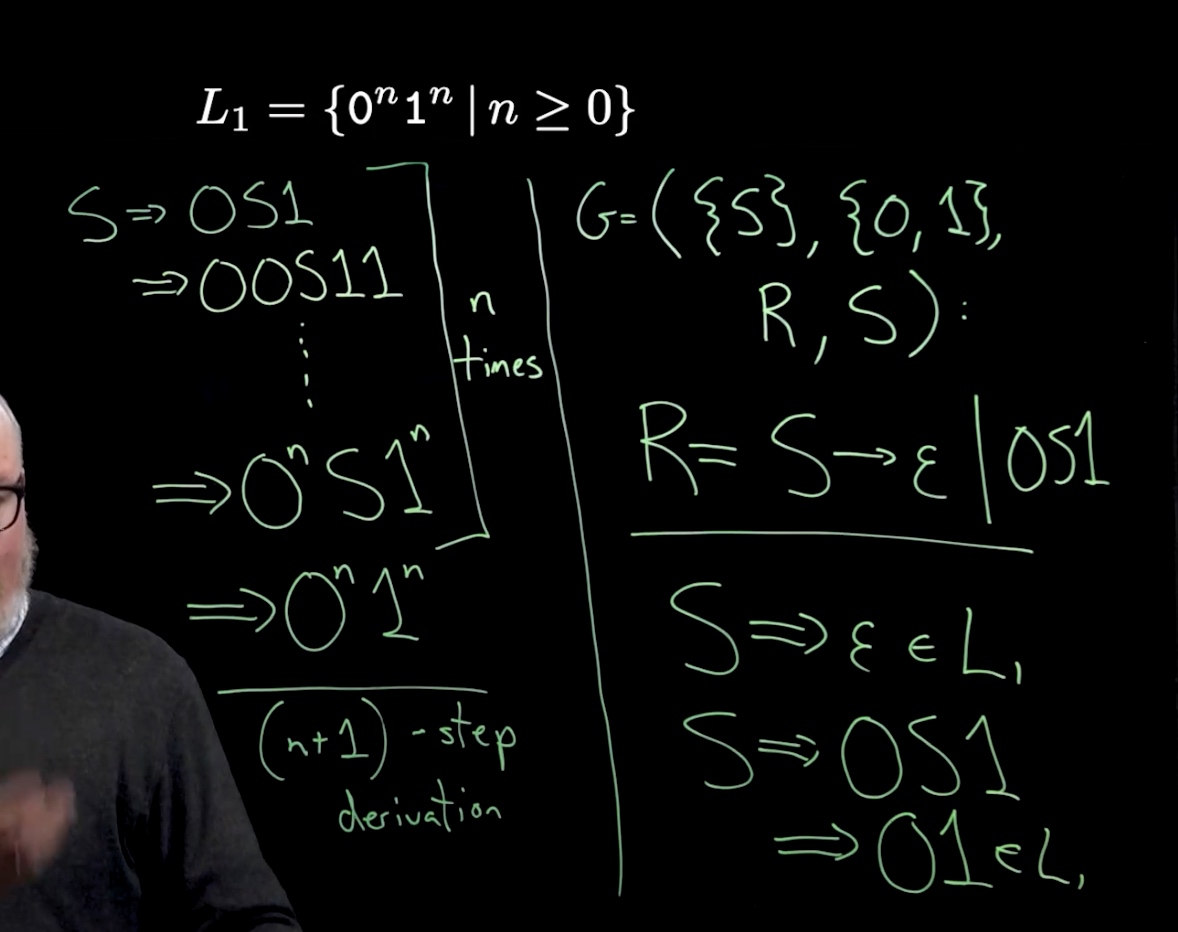 L₁ = {0ⁿ1ⁿ | n ≥ 0}
S ⇒ 0S1
⇒ 00S11
⋮
⇒ 0ⁿS1ⁿ
n
times
⇒ 0ⁿ1ⁿ
(n+1)-step
derivation
G = ({S}, {0, 1},
R, S):
R = S → ε | 0S1
S ⇒ ε ∈ L₁
S ⇒ 0S1
⇒ 01 ∈ L₁